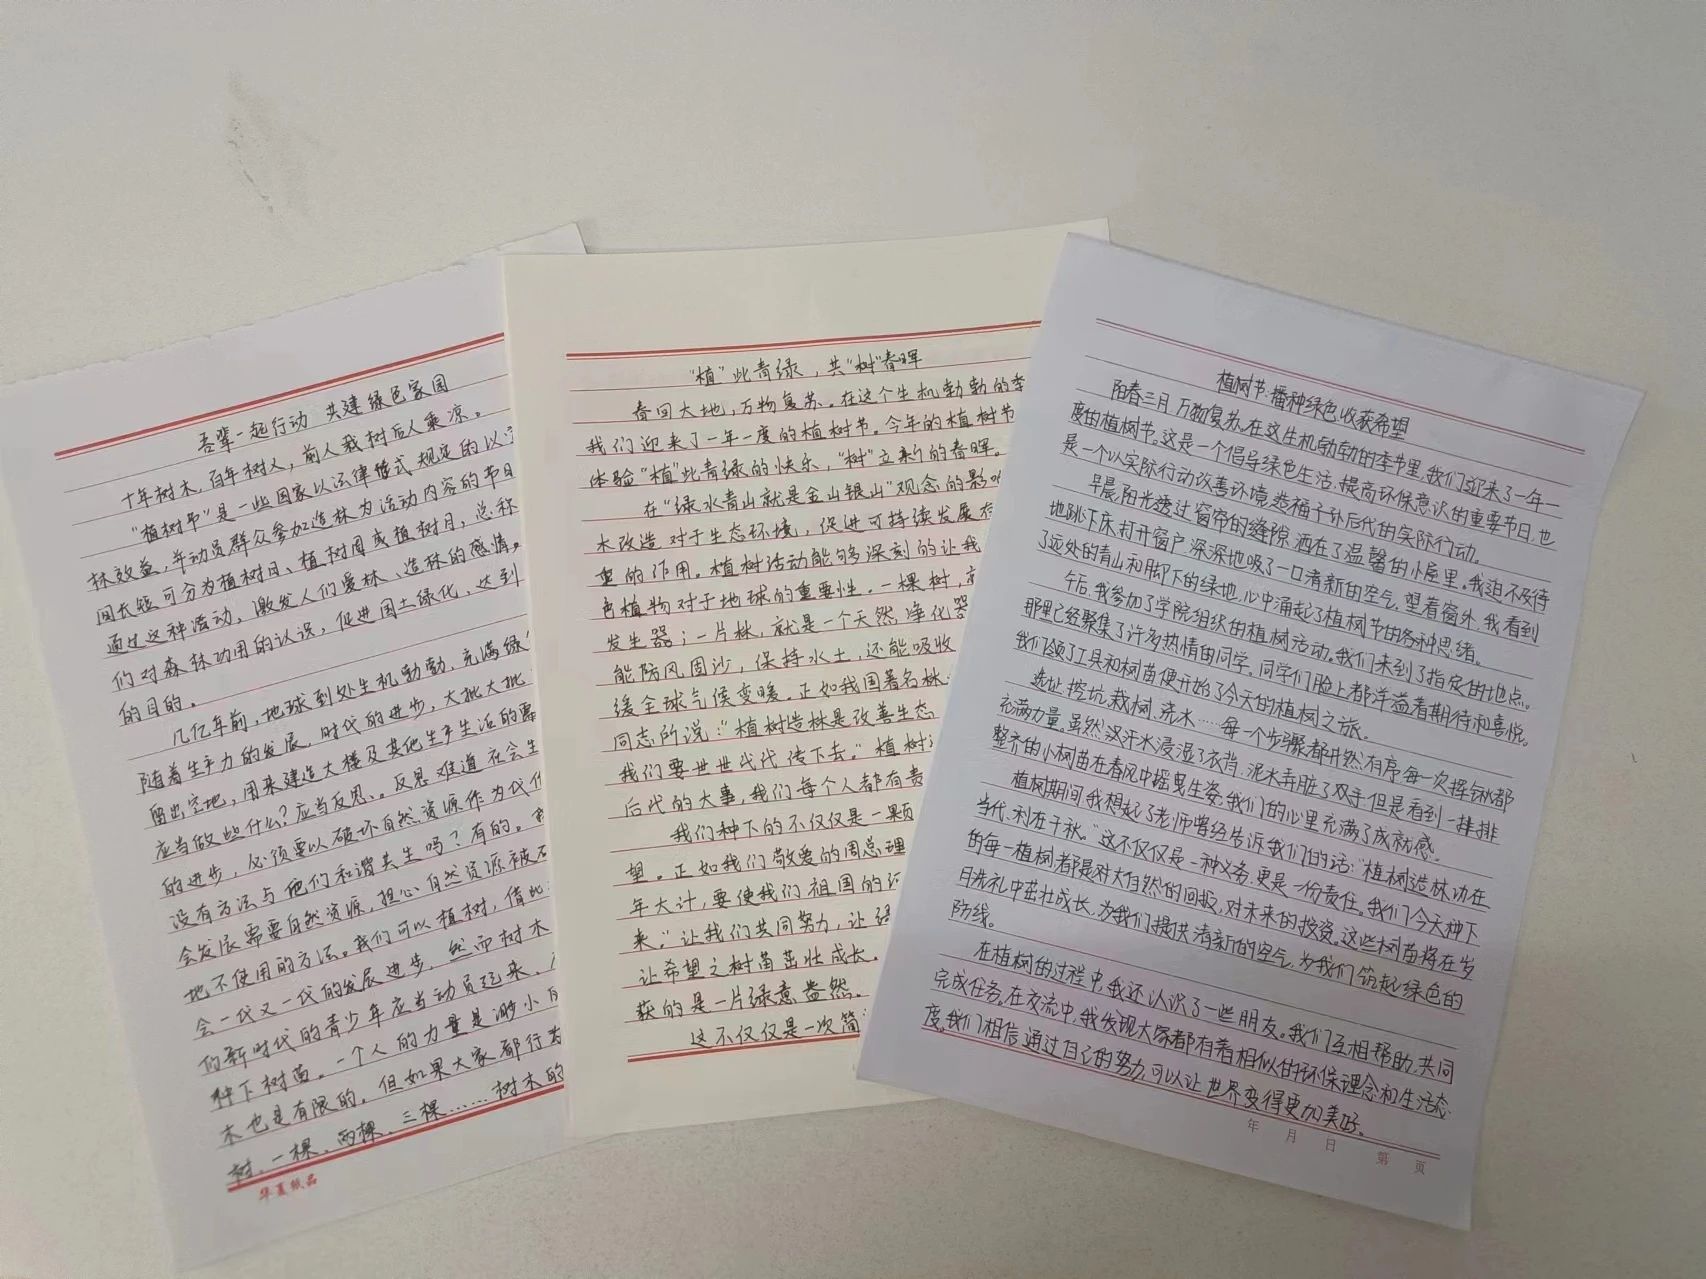 吾辈一起行动 共建绿色家园
十年树木，百年树人，前人栽树后人乘凉。
"植树节"是一些国家以法律形式规定的以
林效益，并动员群众参加造林为活动内容的节日
间长短可分为植树日、植树周或植树月，总称
通过这种活动，激发人们爱林、造林的感情，
们对森林功用的认识，促进国土绿化，达到
的目的。
几亿年前，地球到处生机勃勃，充满绿
随着生产力的发展，时代的进步，大批大批
留出空地，用来建造大楼及其他生产生活的需
应当做些什么？应当反思、。反思难道社会生
的进步，必须要以破坏自然资源作为代价
没有方法与他们和谐共生吗？有的。
会发展需要自然资源，担心自然资源被
地不使用的方法。我们可以植树，借此
会一代又一代的发展进步，然而树木
的新时代的青少年应当动员起来，
种下树苗。一个人的力量是渺小
木也是有限的，但如果大家都行
树，一棵、两棵、三棵……树木的
华夏纸品
"植"此青绿，共"树"春晖
春回大地，万物复苏。在这个生机勃勃的季
我们迎来了一年一度的植树节。今年的植树节
体验"植"此青绿的快乐，"树"立来的春晖。
在"绿水青山就是金山银山"观念的影响
木改造对于生态环境，促进可持续发展有
重的作用。植树活动能够深刻的让我
色植物对于地球的重要性。一棵树，就
发生器；一片林，就是一个天然净化器
能防风固沙，保持水土，还能吸收
缓全球气候变暖。正如我国著名林
同志所说："植树造林是改善生态
我们要世世代代传下去。"植树
后代的大事，我们每个人都有责
我们种下的不仅仅是一颗
望。正如我们敬爱的周总理
年大计，要使我们祖国的
来。"让我们共同努力，让绿
让希望之树苗茁壮成长。
获的是一片绿意盎然。
这不仅仅是一次简
植树节：播种绿色，收获希望
阳春三月，万物复苏。在这生机勃勃的季节里，我们迎来了一年一
度的植树节。这是一个倡导绿色生活、提高环保意识的重要节日，也
是一个以实际行动改善环境、造福子孙后代的实际行动。
早晨，阳光透过窗帘的缝隙，洒在了温馨的小屋里。我迫不及待
地跳下床，打开窗户，深深地吸了一口清新的空气。望着窗外，我看到
了远处的青山和脚下的绿地，心中涌起了植树节的各种思绪。
午后，我参加了学院组织的植树活动。我们来到了指定的地点。
那里已经聚集了许多热情的同学。同学们脸上都洋溢着期待和喜悦。
我们领了工具和树苗，便开始了今天的植树之旅。
选址、挖坑、栽树、浇水……每一个步骤都井然有序，每一次挥锹都
充满力量。虽然汉汗水浸湿了衣背，泥水弄脏了双手，但是看到一排排
整齐的小树苗在春风中摇曳生姿，我们的心里充满了成就感。
植树期间，我想起了老师曾经告诉我们的话："植树造林，功在
当代，利在千秋。"这不仅仅是一种义务，更是一份责任。我们今天种下
的每一植树都是对大自然的回报，对未来的投资。这些树苗将在岁
月洗礼中茁壮成长，为我们提供清新的空气，为我们筑起绿色的
防线。
在植树的过程中，我还认识了一些朋友。我们互相帮助，共同
完成任务。在交流中，我发现大家都有着相似的环保理念和生活态
度。我们相信，通过自己的努力，可以让世界变得更加美好。
年 月 日 第 页